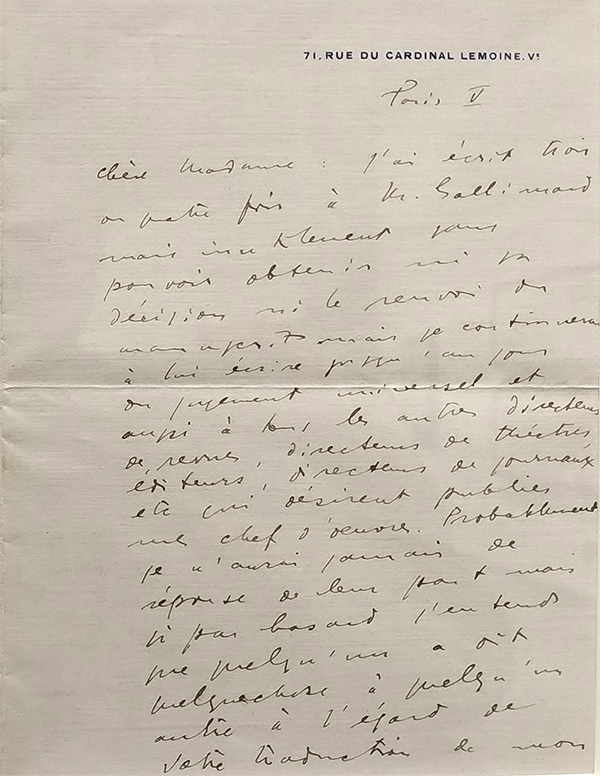 71, RUE DU CARDINAL LEMOINE. Vᵉ
Paris V
Chère Madame : J'ai écrit trois
ou quatre fois à Mr. Gallimard
mais inutilement sans
pouvoir obtenir ni sa
décision ni le renvoi du
manuscrit mais je continuerai
à lui écrire jusqu'au jour
du jugement universel et
aussi à tous les autres directeurs
de revues, directeurs de théâtres
éditeurs, directeurs de journaux
etc qui désirent publier
mes chef d'oeuvres. Probablement
je n'aurai jamais de
réponse de leur part mais
si par hasard j'entends
que quelqu'un a dit
quelquechose à quelqu'un
autre à l'égard de
votre traduction de mon